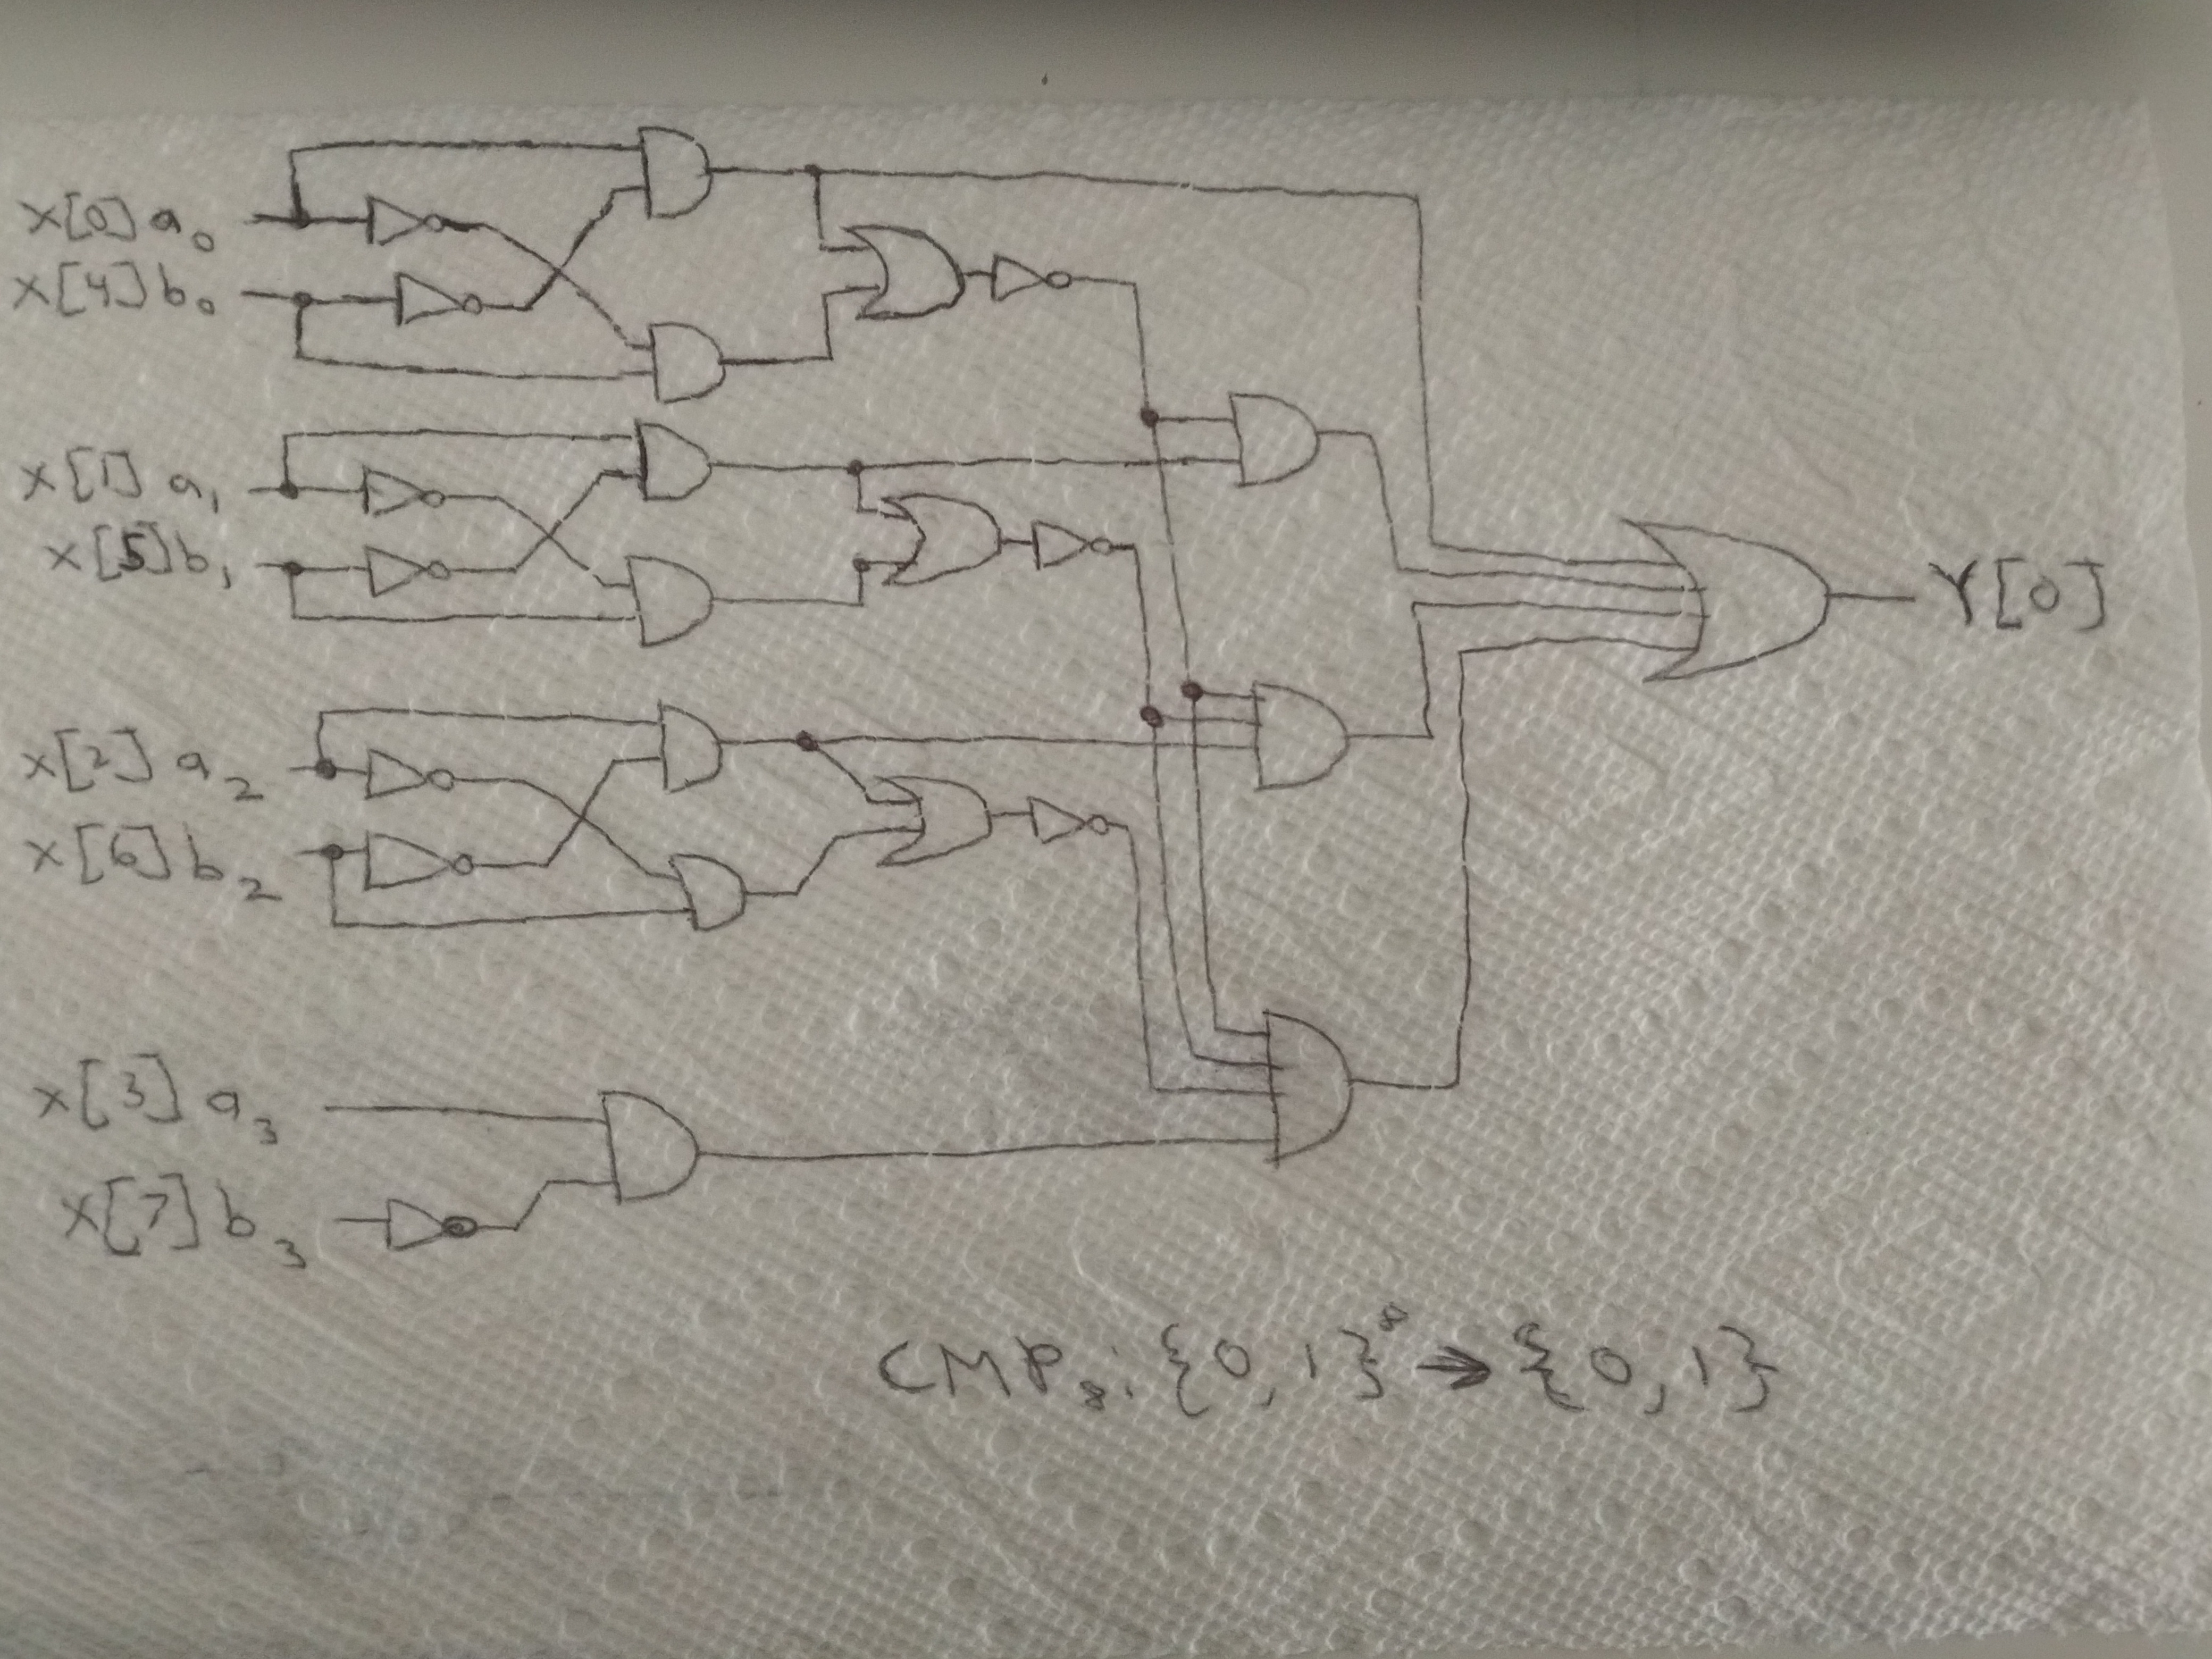 x[0] a₀
x[4] b₀
x[1] a₁
x[5] b₁
x[2] a₂
x[6] b₂
x[3] a₃
x[7] b₃
Y[0]
CMP₈: {0,1}⁸ → {0,1}